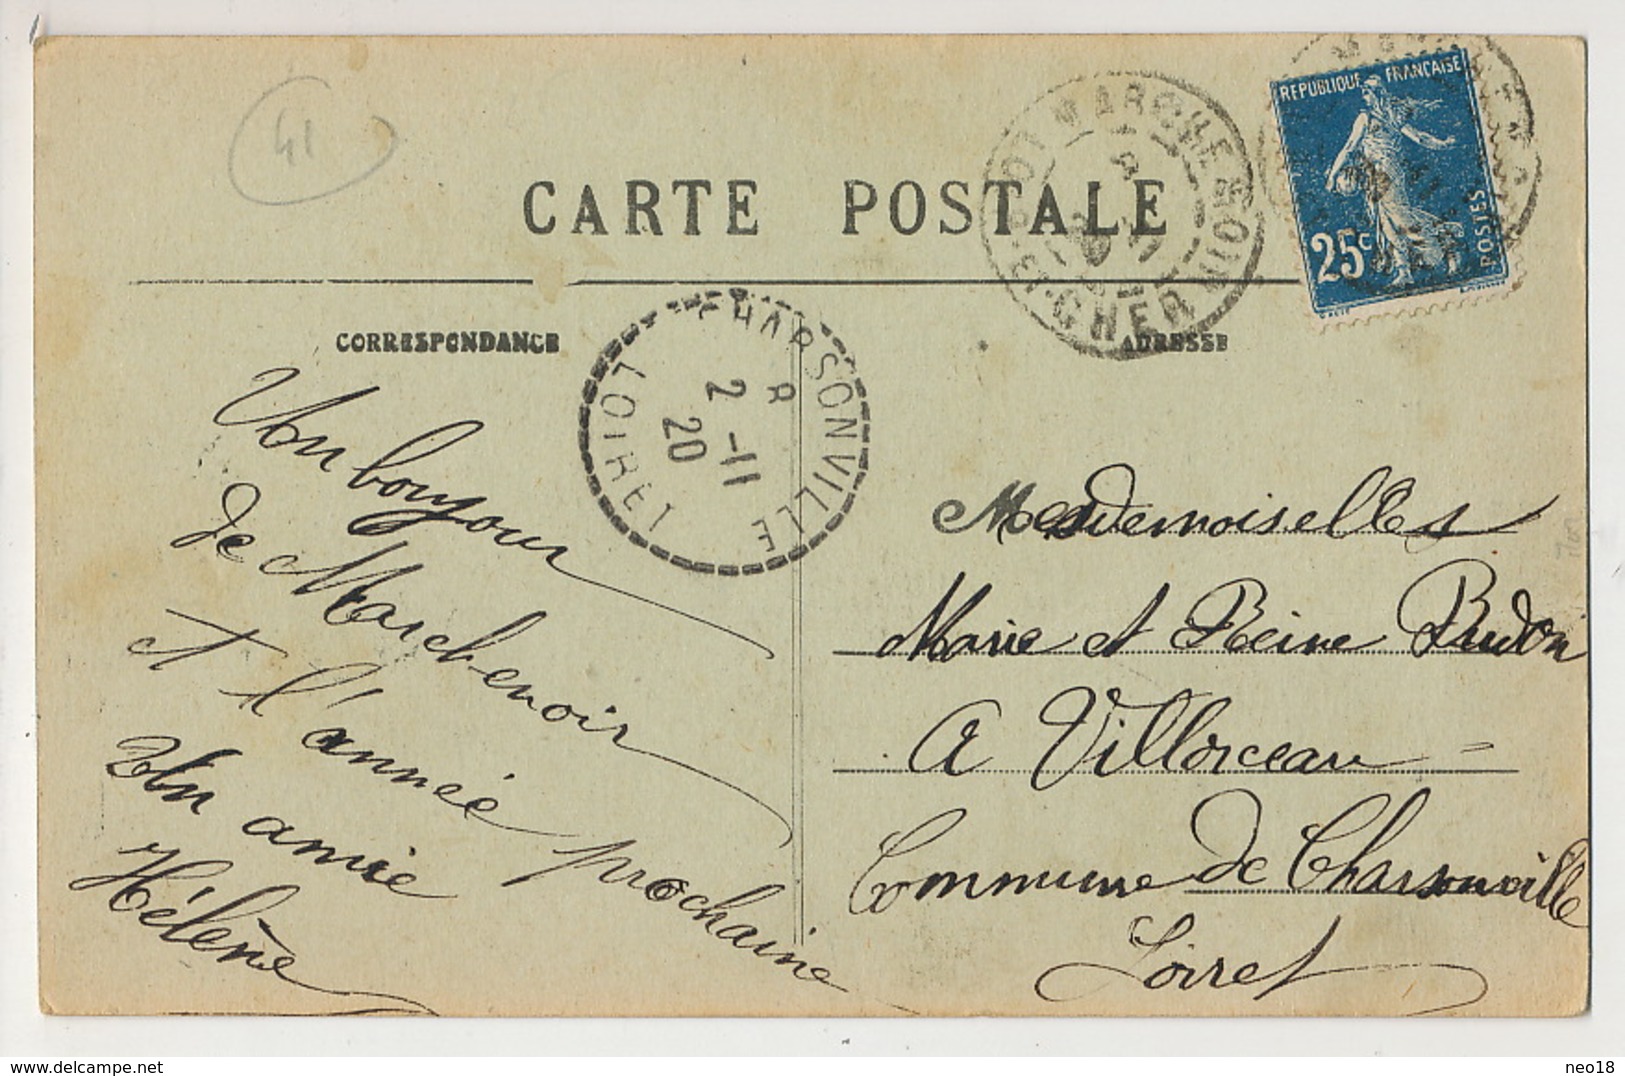 41
CARTE POSTALE
REPUBLIQUE FRANÇAISE
25c
POSTES
MARCHENOIR
LOIR-&-CHER
CORRESPONDANCE
ADRESSE
CHARSONVILLE
8
2 -11
20
LOIRET
Un bonjour
de Marchenoir
et l'année prochaine
Un amie
Hélène
Mesdemoiselles
Marie et Reine Budon
A Villorceau
Commune de Charsonville
Loiret
neo18